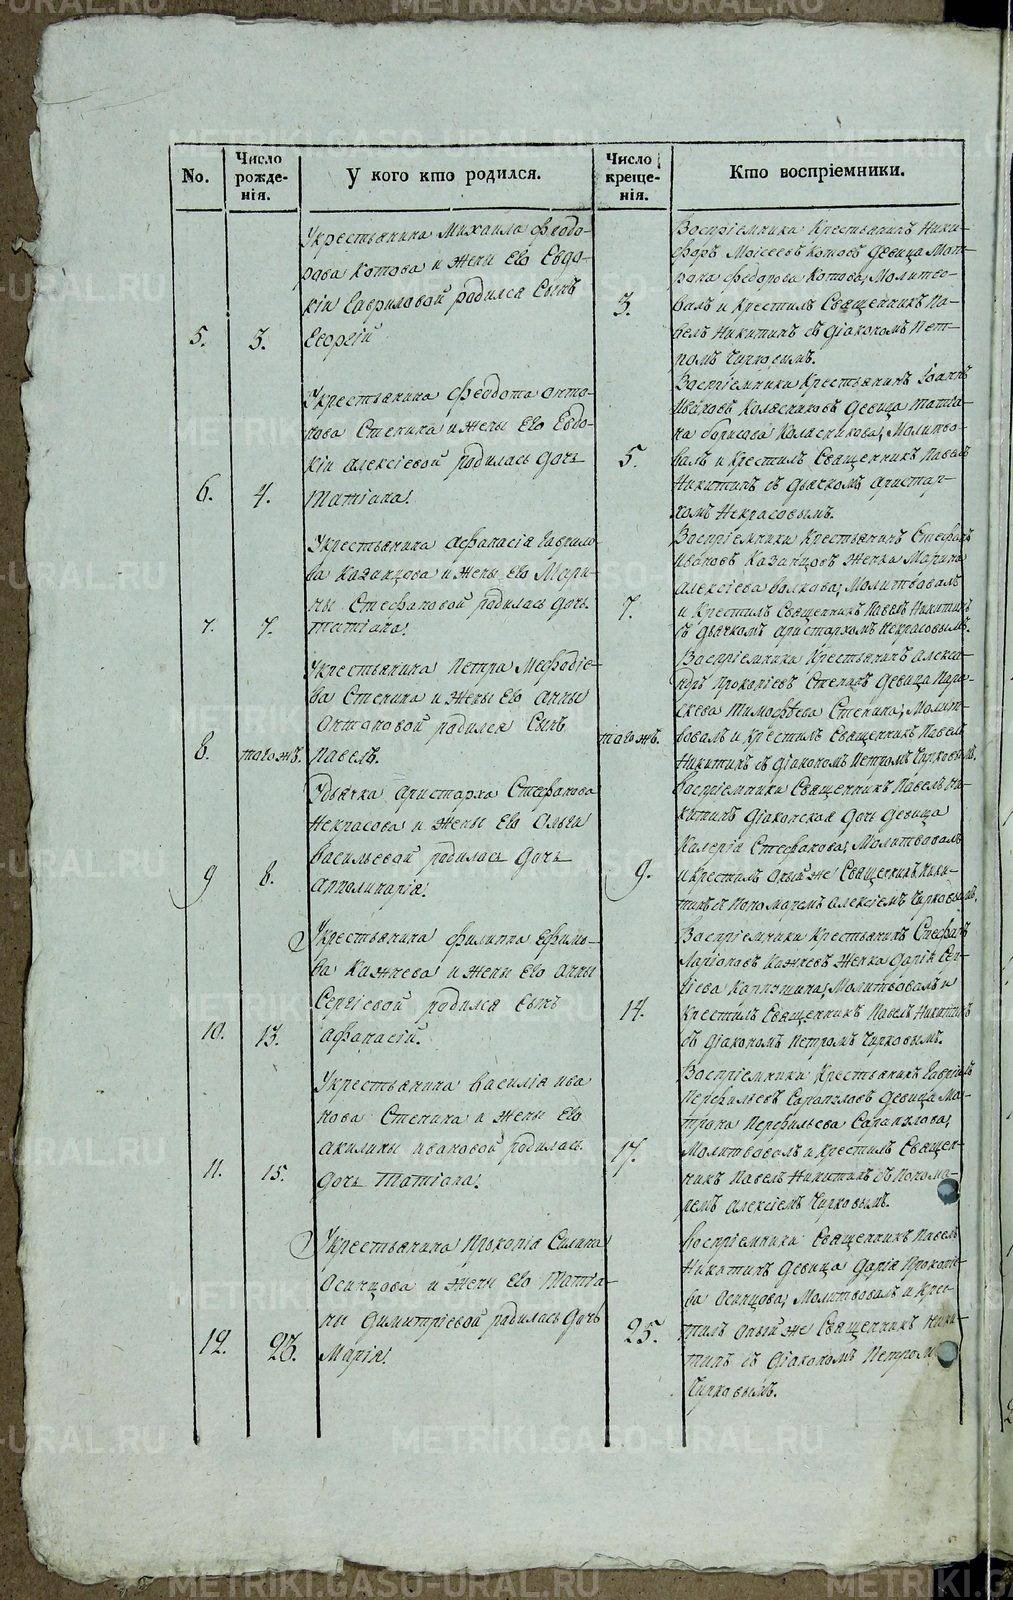 No.
Число рожде-нія.
У кого кто родился.
Число креще-нія.
Кто воспріемники.
5.
3.
Укрестьянина Михаила Феодо-
рова Котова и жены Его Евдо-
кіи Гавриловой родился Сынъ
Георгій
3.
Воспріемники Крестьянинъ Ники-
форъ Моісеевъ Котовъ Девица Мат-
рона Федорова Котова; Молитво-
валъ и Крестилъ Священникъ Па-
велъ Никитинъ съ діакономъ Пет-
ромъ Чирковымъ.
6.
4.
Укрестьянина Феодота Анто-
нова Степина и жены Его Евдо-
кіи Алексіевой родилась дочь
Татіана.
5.
Воспріемники Крестьянинъ Іоаннъ
Ивановъ Колясниковъ Девица Татиа-
на борисова Колясникова; Молитво-
валъ и Крестилъ Священникъ Павелъ
Никитинъ съ дьячкомъ Аристар-
хомъ Некрасовымъ.
7.
7.
Укрестьянина Афанасія Гаврило-
ва Казанцова и жены Его Мари-
ны Стефановой родилась дочь
Татіана.
7.
Воспріемники Крестьянинъ Стефанъ
Ивановъ Казанцовъ женка Марина
Алексіева Волкова; Молитвовалъ
и Крестилъ Священникъ Павелъ Никитинъ
съ дьячкомъ Аристархомъ Некрасовымъ.
8.
тогожъ.
Укрестьянина Петра Мефодіе-
ва Степина и жены Его Анны
Антоновой родился Сынъ
Павелъ.
тогожъ.
Воспріемники Крестьянинъ Алекса-
ндръ Прокопіевъ Степинъ Девица Пара-
скева Тимофѣева Степина; Молит-
вовалъ и Крестилъ Священникъ Павелъ
Никитинъ съ діакономъ Петромъ Чирковымъ.
9
8.
Удьячка Аристарха Стефанова
Некрасова и жены Его Ольги
Васильевой родилась дочь
Апполинарія.
9.
Воспріемники Священникъ Павелъ Ни-
китинъ Діаконская дочь девица
Калерія Стефанова; Молитвовалъ
и крестилъ оный же Священникъ Ники-
тинъ съ Пономаремъ Алексіемъ Чирковымъ.
10.
13.
Укрестьянина Филиппа Ефимо-
ва Кажнева и жены Его Анны
Сергіевой родился сынъ
Афанасій.
14.
Воспріемники Крестьянинъ Стефанъ
Маріоновъ Кажневъ Женка Дарія Сер-
гіева Каптина; Молитвовалъ и
Крестилъ Священникъ Павелъ Никитинъ
съ діакономъ Петромъ Чирковымъ.
11.
15.
Укрестьянина Василія Ива
нова Степина и жены Его
Акилины Ивановой родилась
дочь Татіана.
17.
Воспріемники Крестьянинъ Гавріилъ
Перфильевъ Сарапуловъ девица Ма-
трона Перфильева Сарапулова;
Молитвовалъ и Крестилъ Священ-
никъ Павелъ Никитинъ съ Понома-
ремъ Алексіемъ Чирковымъ.
12.
23.
Укрестьянина Прокопія Силина
Осинцова и жены Его Татіа-
ны Димитріевой родилась дочь
Марія.
25.
Воспріемники Священникъ Павелъ
Никитинъ девица Дарія Прокопіе-
ва Осинцова; Молитвовалъ и Крес-
тилъ оный же Священникъ Ники-
тинъ съ діакономъ Петромъ
Чирковымъ.
METRIKI.GASO-URAL.RU